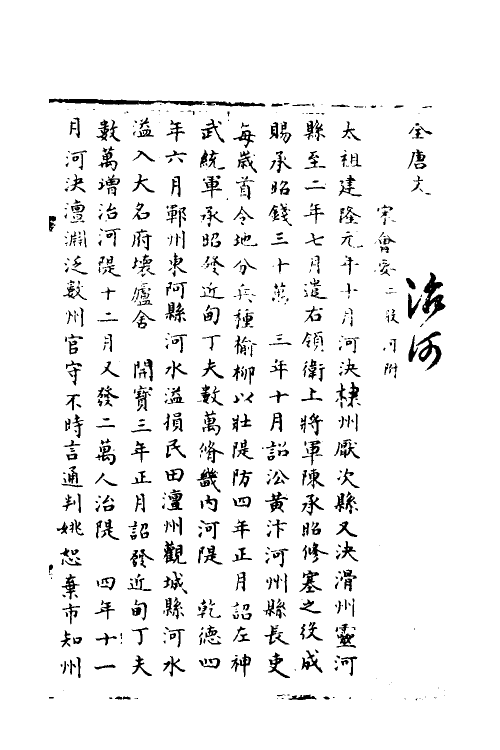 全唐文
宋會要 二股河附
治河
太祖建隆元年十月河決棣州厭次縣又決滑州靈河
縣至二年七月遣右領衛上將軍陳承昭修塞之役成
賜承昭錢三十萬 三年十月詔沿黃汴河州縣長吏
每歲首令地分兵種榆柳以壯隄防四年正月詔左神
武統軍承昭發近甸丁夫數萬脩畿内河隄 乾德四
年六月鄆州東阿縣河水溢損民田澶州觀城縣河水
溢入大名府壞廬舍 開寶三年正月詔發近甸丁夫
數萬增治河隄十二月又發二萬人治隄 四年十一
月河決澶淵泛數州官守不時言通判姚恕棄市知州